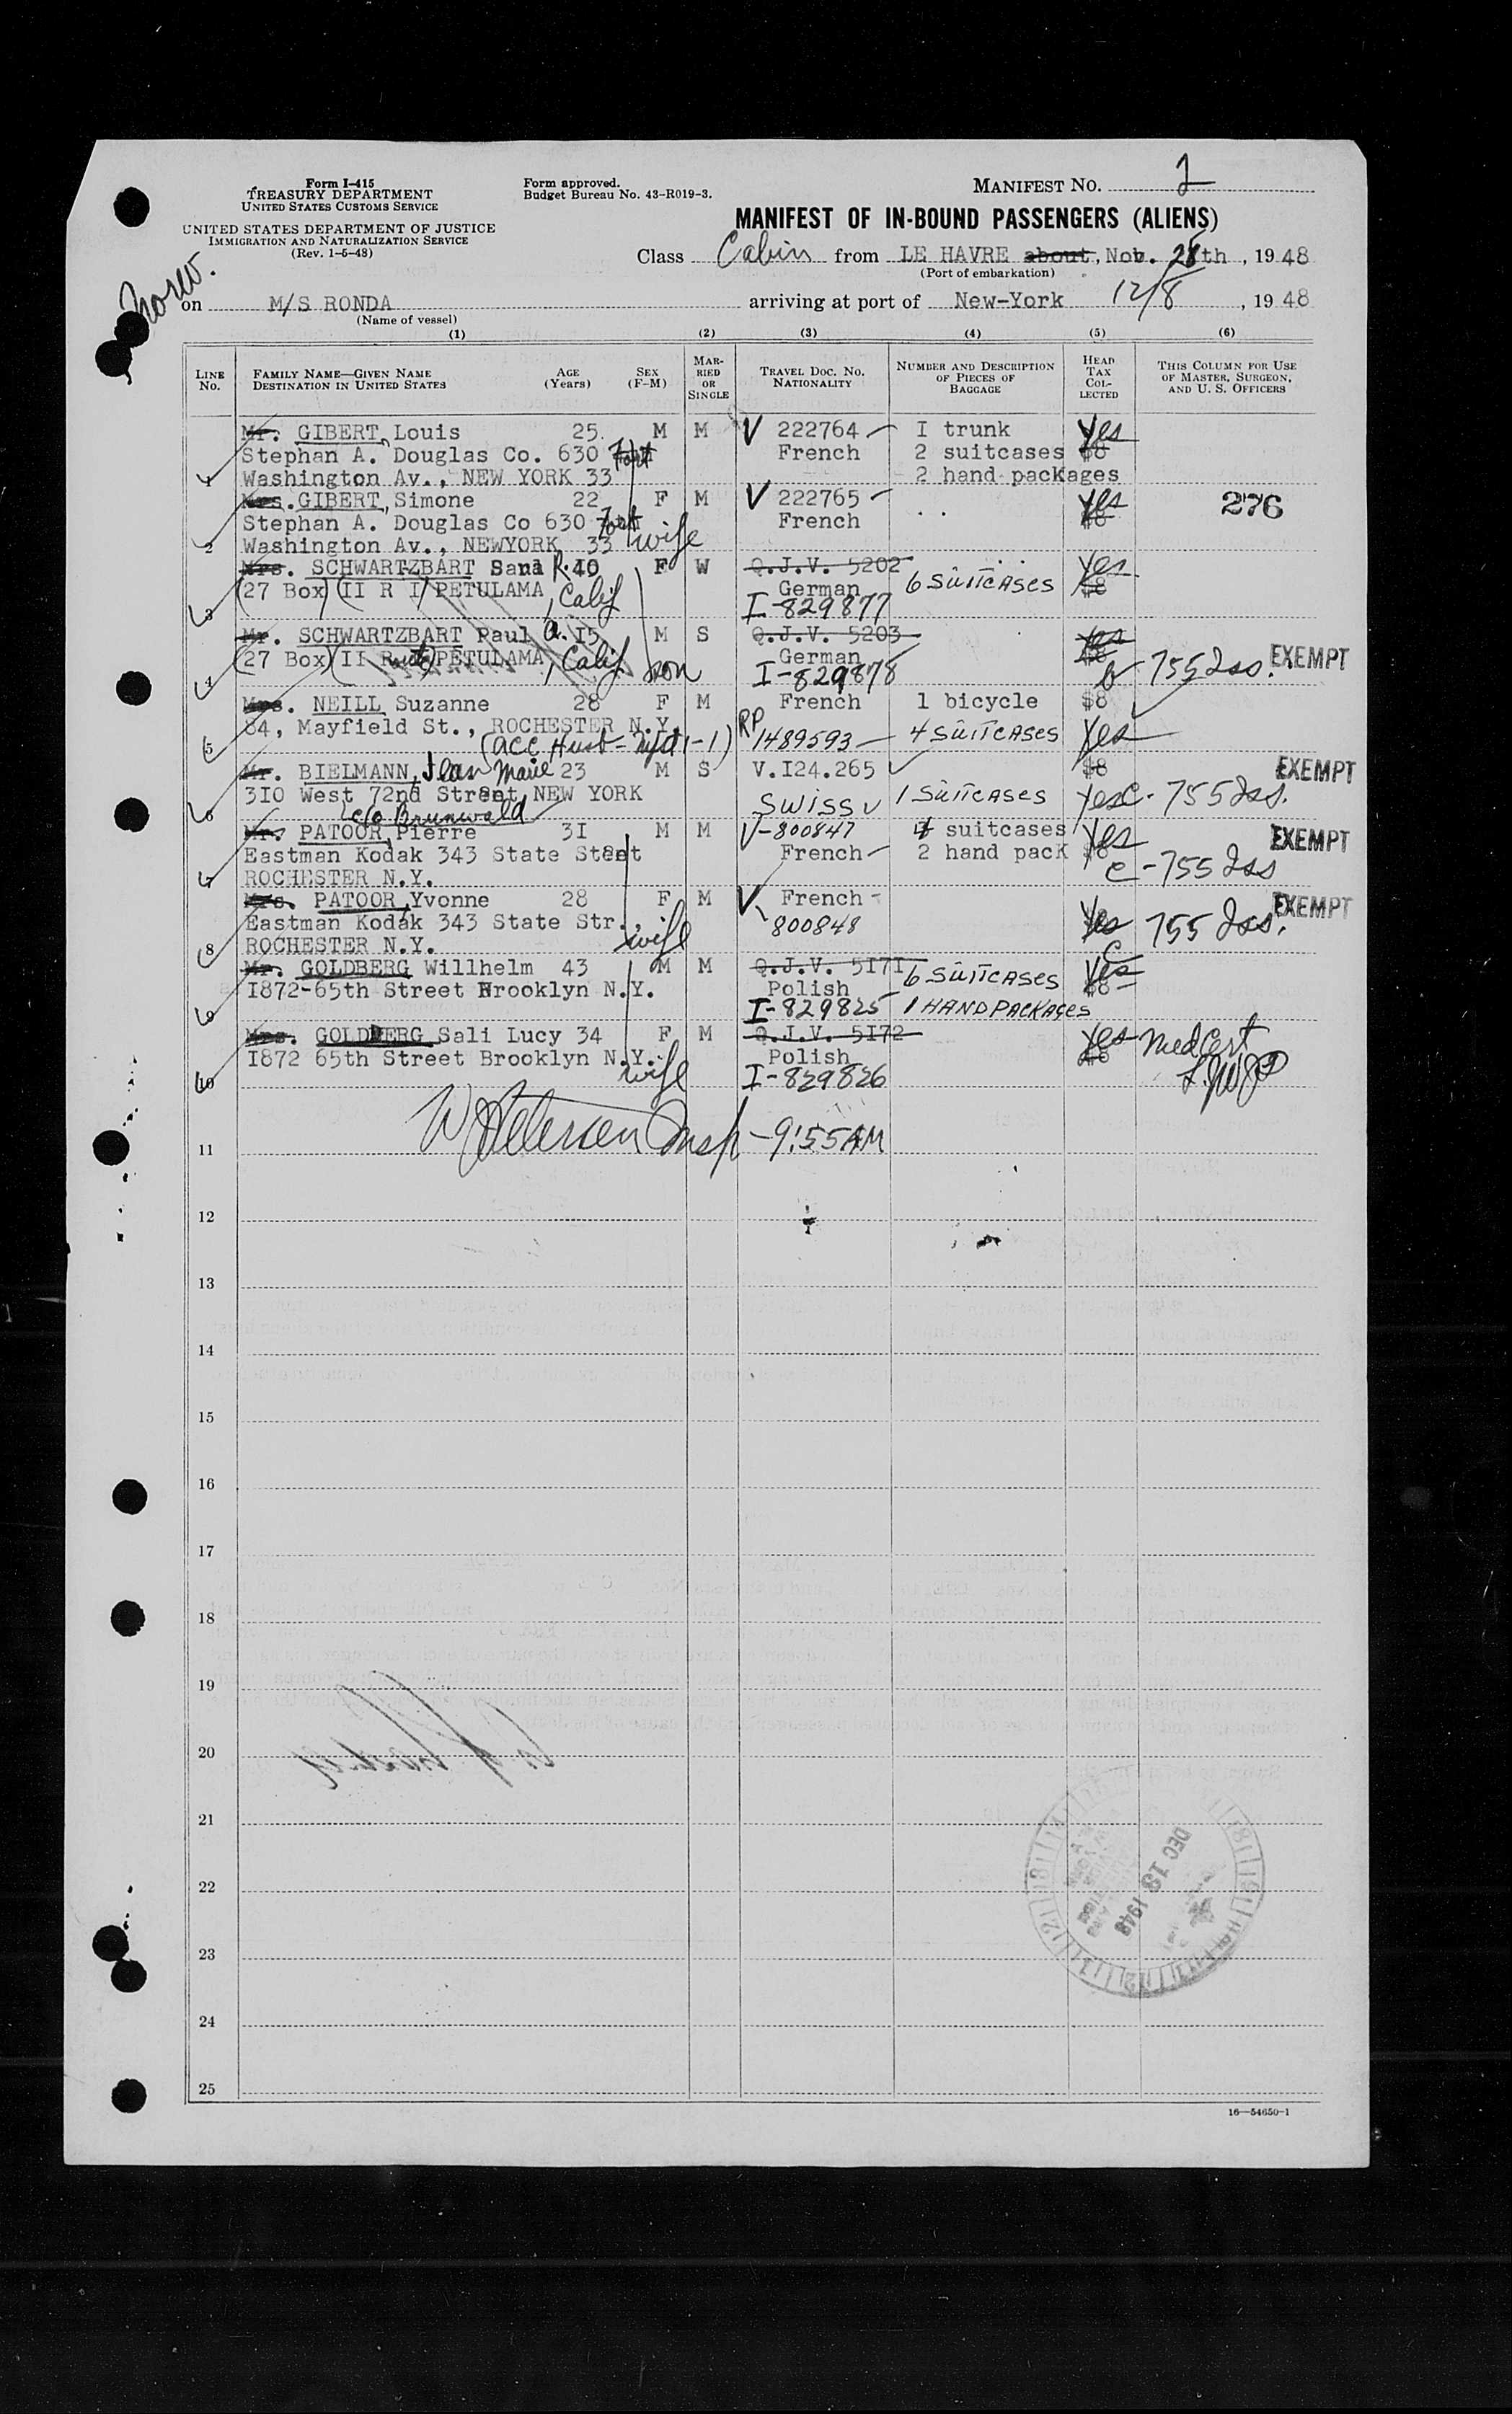 Form I-415
TREASURY DEPARTMENT
UNITED STATES CUSTOMS SERVICE
UNITED STATES DEPARTMENT OF JUSTICE
IMMIGRATION AND NATURALIZATION SERVICE
(Rev. 1-5-48)
Form approved.
Budget Bureau No. 43-R019-3.
MANIFEST No. 2
MANIFEST OF IN-BOUND PASSENGERS (ALIENS)
Class Cabin from LE HAVRE about, Nov. 28th, 1948
(Port of embarkation)
Norw.
on M/S RONDA arriving at port of New-York 12/8, 1948
(Name of vessel)
(1) (2) (3) (4) (5) (6)
LINE No. FAMILY NAME—GIVEN NAME DESTINATION IN UNITED STATES AGE (Years) SEX (F-M) MARRIED OR SINGLE TRAVEL DOC. NO. NATIONALITY NUMBER AND DESCRIPTION OF PIECES OF BAGGAGE HEAD TAX COLLECTED THIS COLUMN FOR USE OF MASTER, SURGEON, AND U. S. OFFICERS
Mr. GIBERT, Louis 25 M M V 222764 I trunk Yes
Stephan A. Douglas Co. 630 Fort French 2 suitcases $8
1 Washington Av., NEW YORK 33 2 hand packages
Mrs. GIBERT, Simone 22 F M V 222765 Yes 276
Stephan A. Douglas Co 630 Fort French $8
2 Washington Av., NEWYORK 33 wife
Mrs. SCHWARTZBART Sana R. 40 F W Q.J.V. 5202 Yes
(27 Box) (II R I) PETULAMA, Calif German 6 SUITCASES $8
3 I-829877
Mr. SCHWARTZBART Paul A. 15 M S Q.J.V. 5203 Yes
(27 Box) (II Route) PETULAMA, Calif German $8 EXEMPT
4 son I-829878 b 755 Iss.
Mrs. NEILL Suzanne 28 F M French 1 bicycle $8
84, Mayfield St., ROCHESTER N.Y.
5 (acc Husb - 1-1) RP 1489593 4 SUITCASES Yes
Mr. BIELMANN, Jean Marie 23 M S V.I24.265 $8 EXEMPT
3I0 West 72nd Street NEW YORK
6 c/o Brunwald SWISS V 1 SUITCASES Yes C - 755 Iss.
Mr. PATOOR, Pierre 3I M M V-800847 4 suitcases Yes EXEMPT
Eastman Kodak 343 State Steet French 2 hand pack $8
7 ROCHESTER N.Y. C - 755 Iss
Mrs. PATOOR, Yvonne 28 F M V French EXEMPT
Eastman Kodak 343 State Str., 800848 Yes 755 Iss.
8 ROCHESTER N.Y. wife C
Mr. GOLDBERG Willhelm 43 M M Q.J.V. 5I7I 6 SUITCASES Yes
I872-65th Street Brooklyn N.Y. Polish $8
9 I-829825 1 HANDPACKAGES
Mrs. GOLDBERG Sali Lucy 34 F M Q.J.V. 5I72 Yes Med Cert
I872 65th Street Brooklyn N.Y. Polish $8
10 wife I-829826
W Petersen Insp - 9:55 AM
11
12
13
14
15
16
17
18
19
20
21
22
23
24
25
DEC 13 1948
16—54650-1